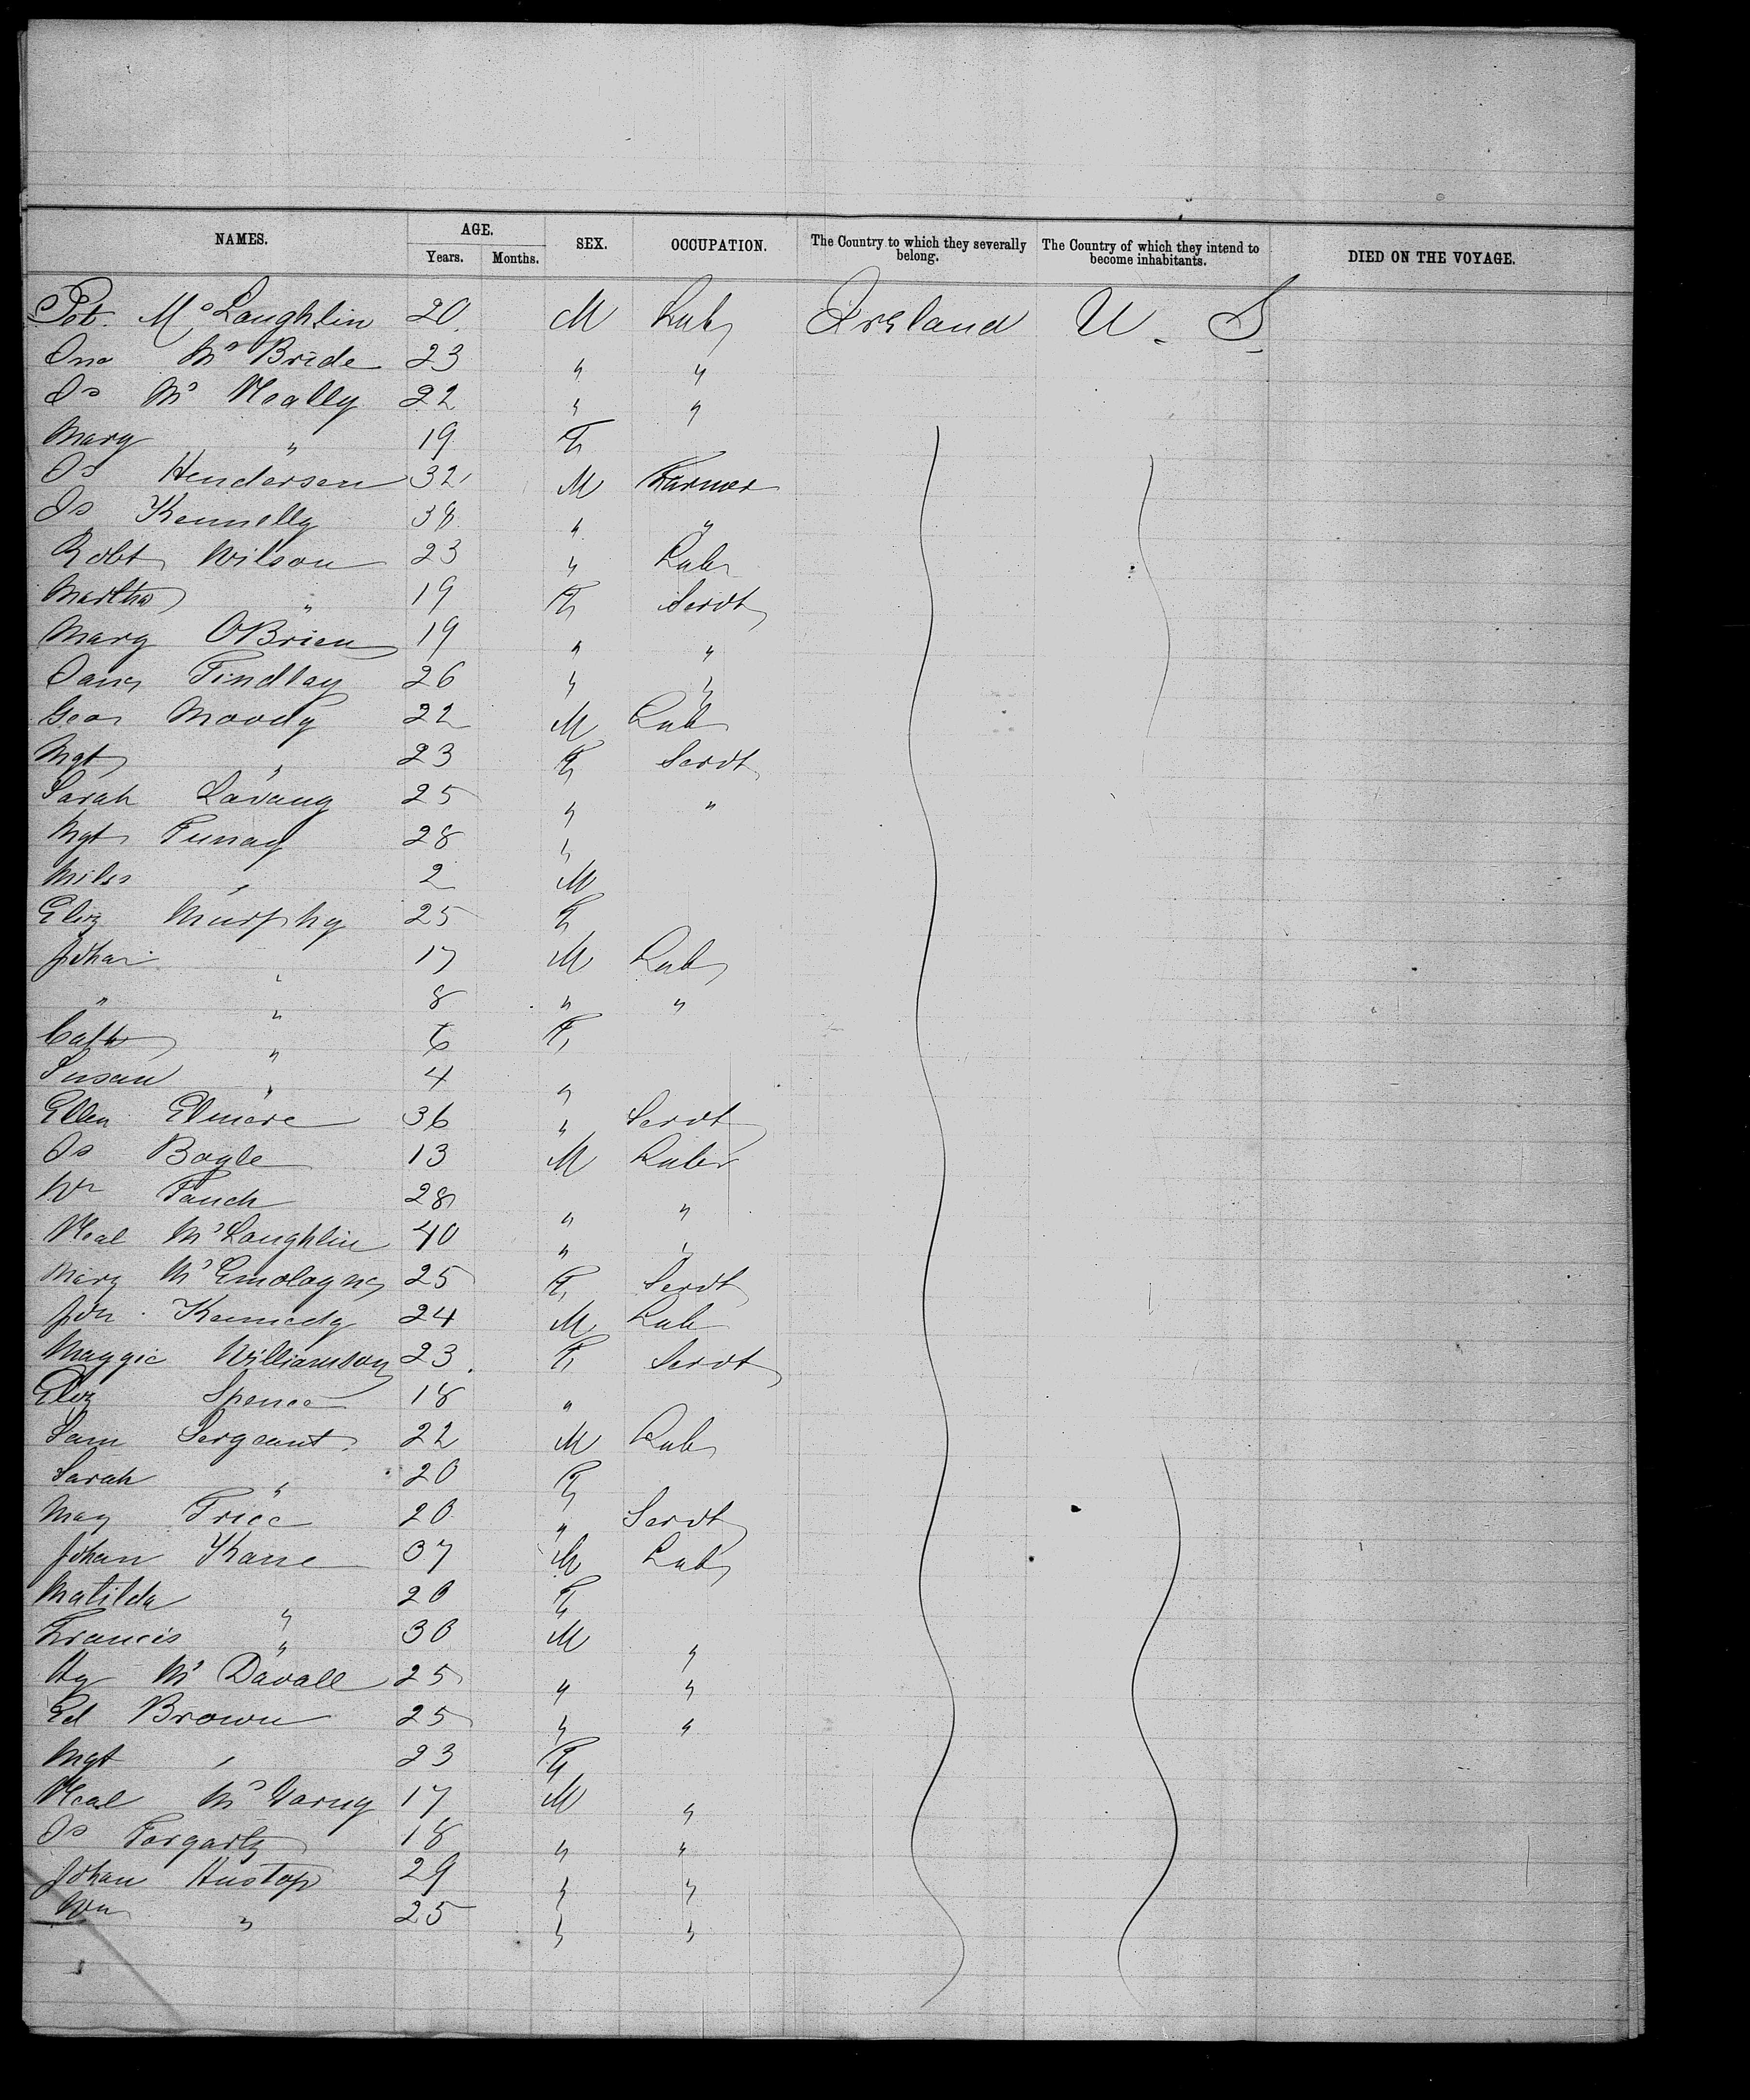 NAMES. AGE. SEX. OCCUPATION. The Country to which they severally belong. The Country of which they intend to become inhabitants. DIED ON THE VOYAGE.
Years. Months.
Pat. McLaughlin 20 M Lab Ireland U.S.
Mc Bride 23 " "
Js Mc Neally 22 " "
Mary " 19 F
Js Henderson 32 M Farmer
Js Kennelly 38 " "
Robt Wilson 23 " Labr
Martha " 19 F Servt
Mary OBrien 19 " "
Jane Findlay 26 " "
Geo Moody 22 M Lab
Mgt " 23 F Servt
Sarah 25 " "
Mgt 28 "
Miles " 2 M
Eliz Murphy 25 F
John " 17 M Lab
" " 8 " "
Cath " 6 F
Susan " 4 "
Ellen Elmore 36 " Servt
Js Bogle 13 M Labr
Wm 28 " "
Neal McLaughlin 40 " "
Mary 25 F Servt
Jon Kennedy 24 M Lab
Maggie Williamson 23 F Servt
Eliz Spence 18 "
Sam Sergeant 22 M Lab
Sarah " 20 F
May 20 " Servt
Johan Kane 37 M Lab
Matilda " 20 F
Francis " 30 M "
Hy Mc Davall 25 " "
Ed Brown 25 " "
Mgt " 23 F
Neal 17 M "
Js Forgarty 18 " "
Johan Hustop 29 " "
Wm " 25 " "